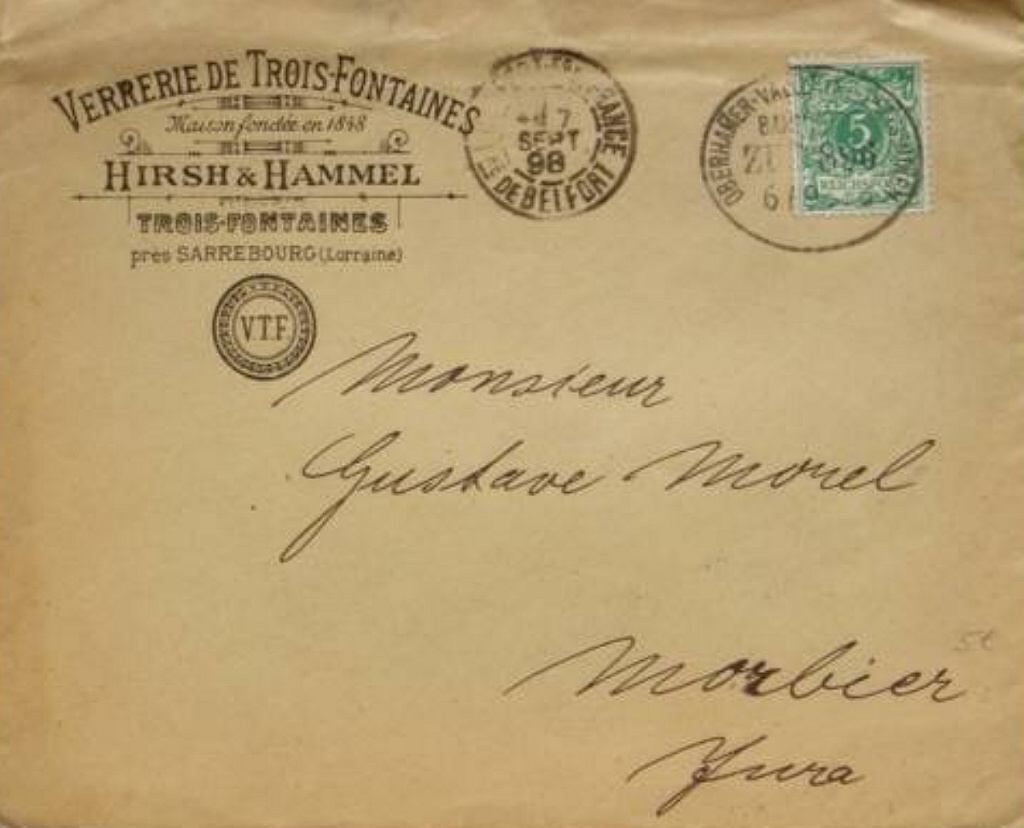 VERRERIE DE TROIS-FONTAINES
Maison fondée en 1848
HIRSH & HAMMEL
TROIS-FONTAINES
près SARREBOURG (Lorraine)
V.T.F
FRANCE
7
SEPT
98
DE BELFORT
OBERHAMER-
ZUG
6
5
REICHSPOST
Monsieur
Gustave Morel
Morbier
Jura
5€